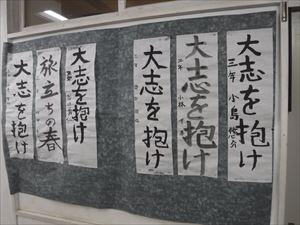 大志を抱け
三年 小島悠介
大志を抱け
二年 小林
大志を抱け
大志を抱け
旅立ちの春
大志を抱け